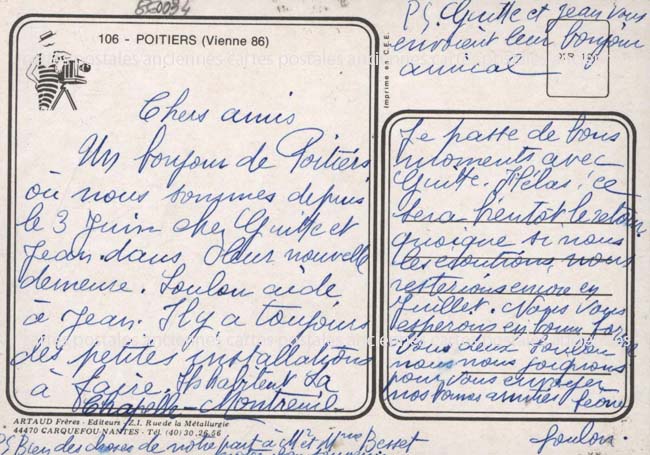 650094
106 - POITIERS (Vienne 86)
cartes postales anciennes cartes postales anciennes cartes postales
Chers amis
Un bonjour de Poitiers,
où nous sommes depuis
le 3 Juin chez Guitte et
Jean dans leur nouvelle
demeure. Loulou aide
à Jean. Il y a toujours
des petites installations
à faire. Ils habitent La
Chapelle-Montreuil
ARTAUD Frères - Editeurs - Z.I. Rue de la Métallurgie
44470 CARQUEFOU-NANTES - Tél. (40) 30.26.56
PS Bien des choses de notre part à Mr et Besset
Imprimé en C.E.E.
PS. Guitte et Jean vous
envoient leur bonjour
amical
Je passe de bons
moments avec
Guitte. Hélas! ce
sera bientôt le retour
quoique si nous
les écoutions, nous
resterions encore en
Juillet. Nous vous
espérons en bonne forme
vous deux Loulou
nous nous joignons
pour vous envoyer
nos bonnes amitiés Léone
Loulou.